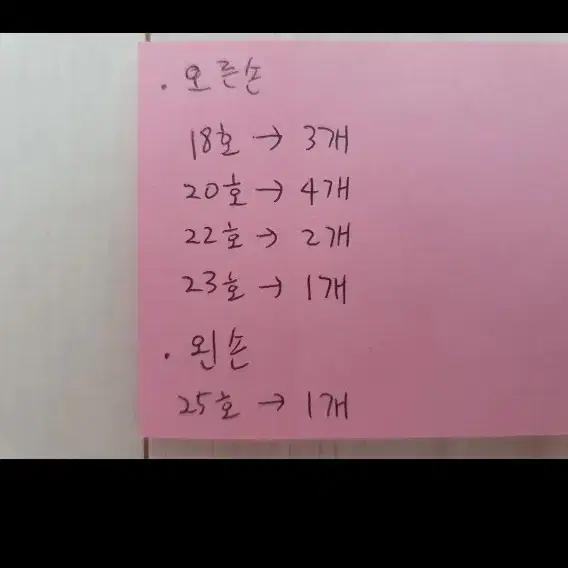 . 오른손
18호 → 3개
20호 → 4개
22호 → 2개
23호 → 1개
. 왼손
25호 → 1개